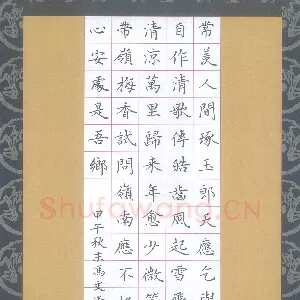 常羡人間琢玉郎天應乞與
自作清歌傳皓齒風起雪
清涼萬里歸来年愈少微笑
帶嶺梅香試問嶺南應不
心安處是吾鄉
甲午秋末馮
Shufawang.CN